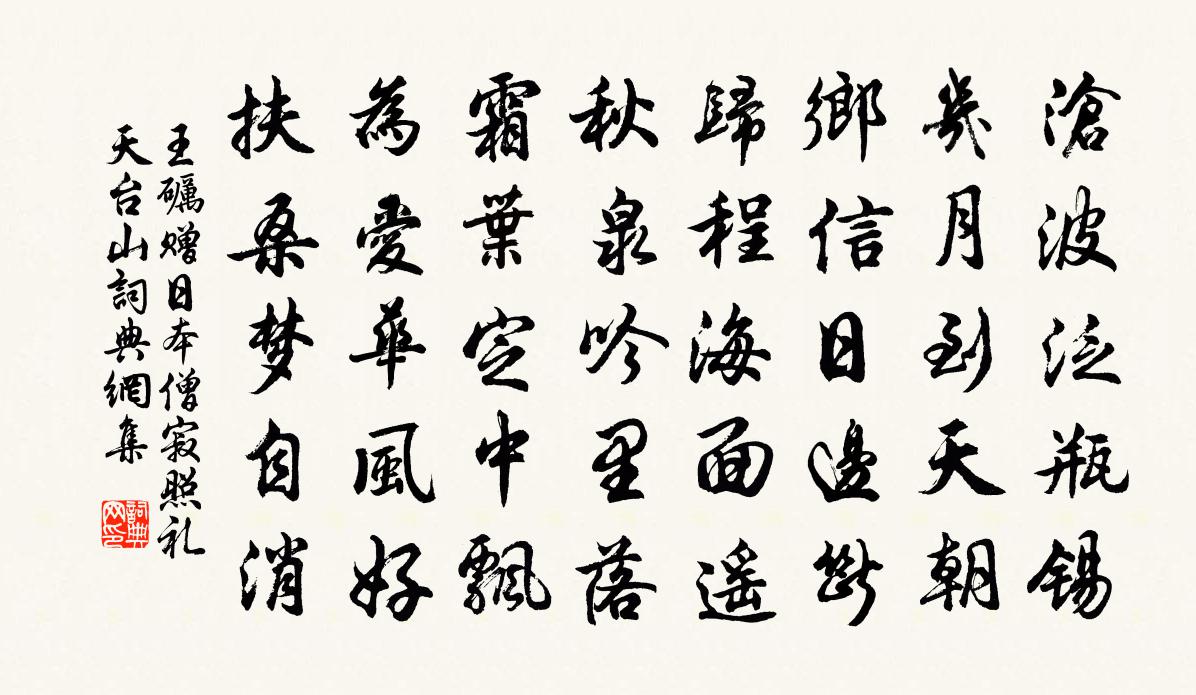 滄波泛瓶錫
幾月到天朝
鄉信日邊斷
歸程海面遥
秋泉吟里落
霜葉定中飄
為愛華風好
扶桑梦自消
王礪赠日本僧寂照礼
天台山詞典網集
詞典网印